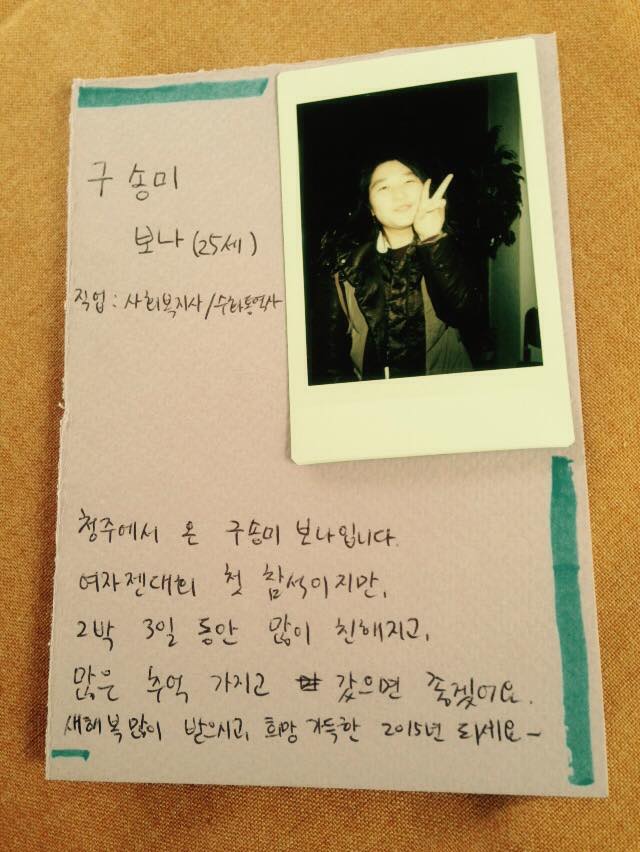 구송미
보나 (25세)
직업 : 사회복지사/수화통역사
청주에서 온 구송미 보나입니다.
여자젠대회 첫 참석이지만,
2박 3일 동안 많이 친해지고,
많은 추억 가지고 갔으면 좋겠어요.
새해 복 많이 받으시고, 희망 가득한 2015년 되세요~